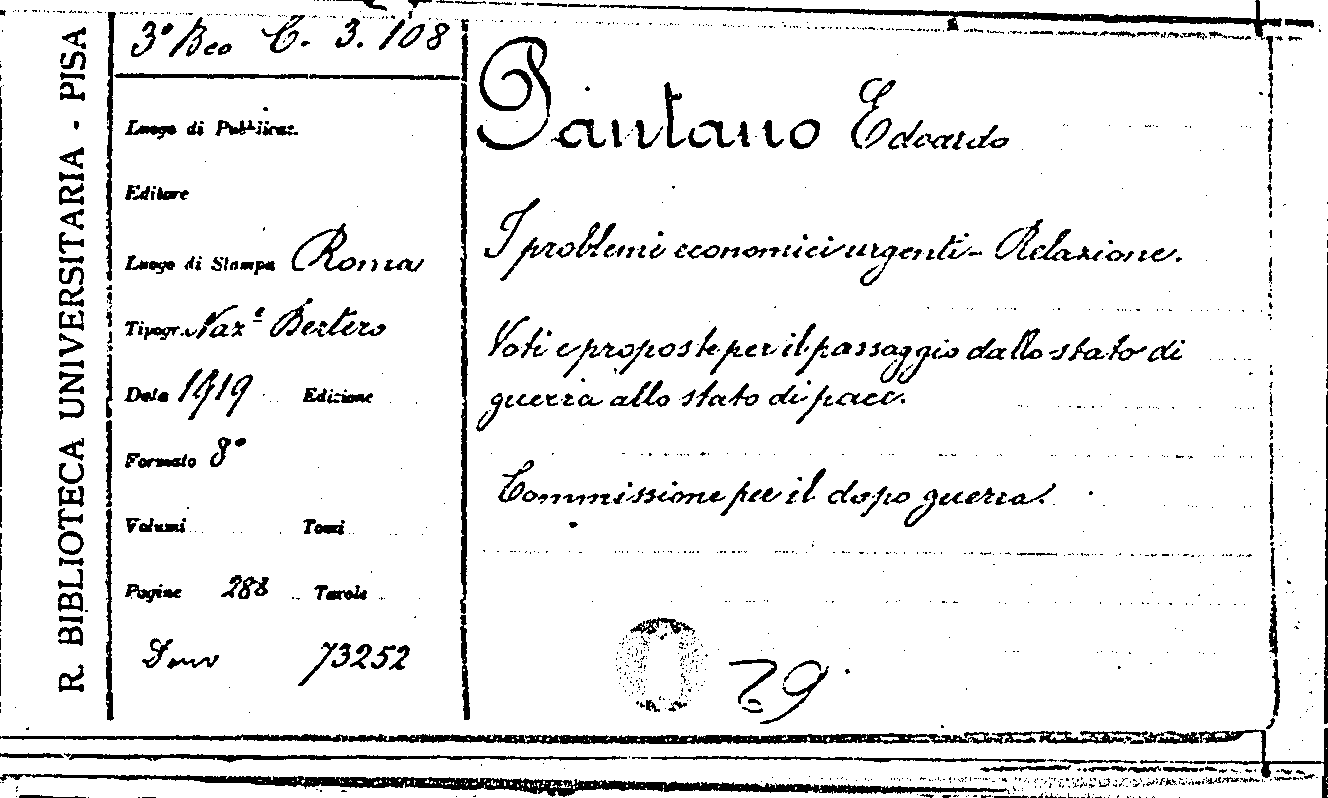 R. BIBLIOTECA UNIVERSITARIA - PISA
3° Bco C. 3. 108
Luogo di Pubblicaz.
Editore
Luogo di Stampa Roma
Tipogr. Naz.e Bertero
Data 1919 Edizione
Formato 8°
Volumi Tomi
Pagine 288 Tavole
Dono 73252
Pantano Edoardo
I problemi economici urgenti - Relazione.
Voti e proposte per il passaggio dallo stato di
guerra allo stato di pace.
Commissione per il dopo guerra.